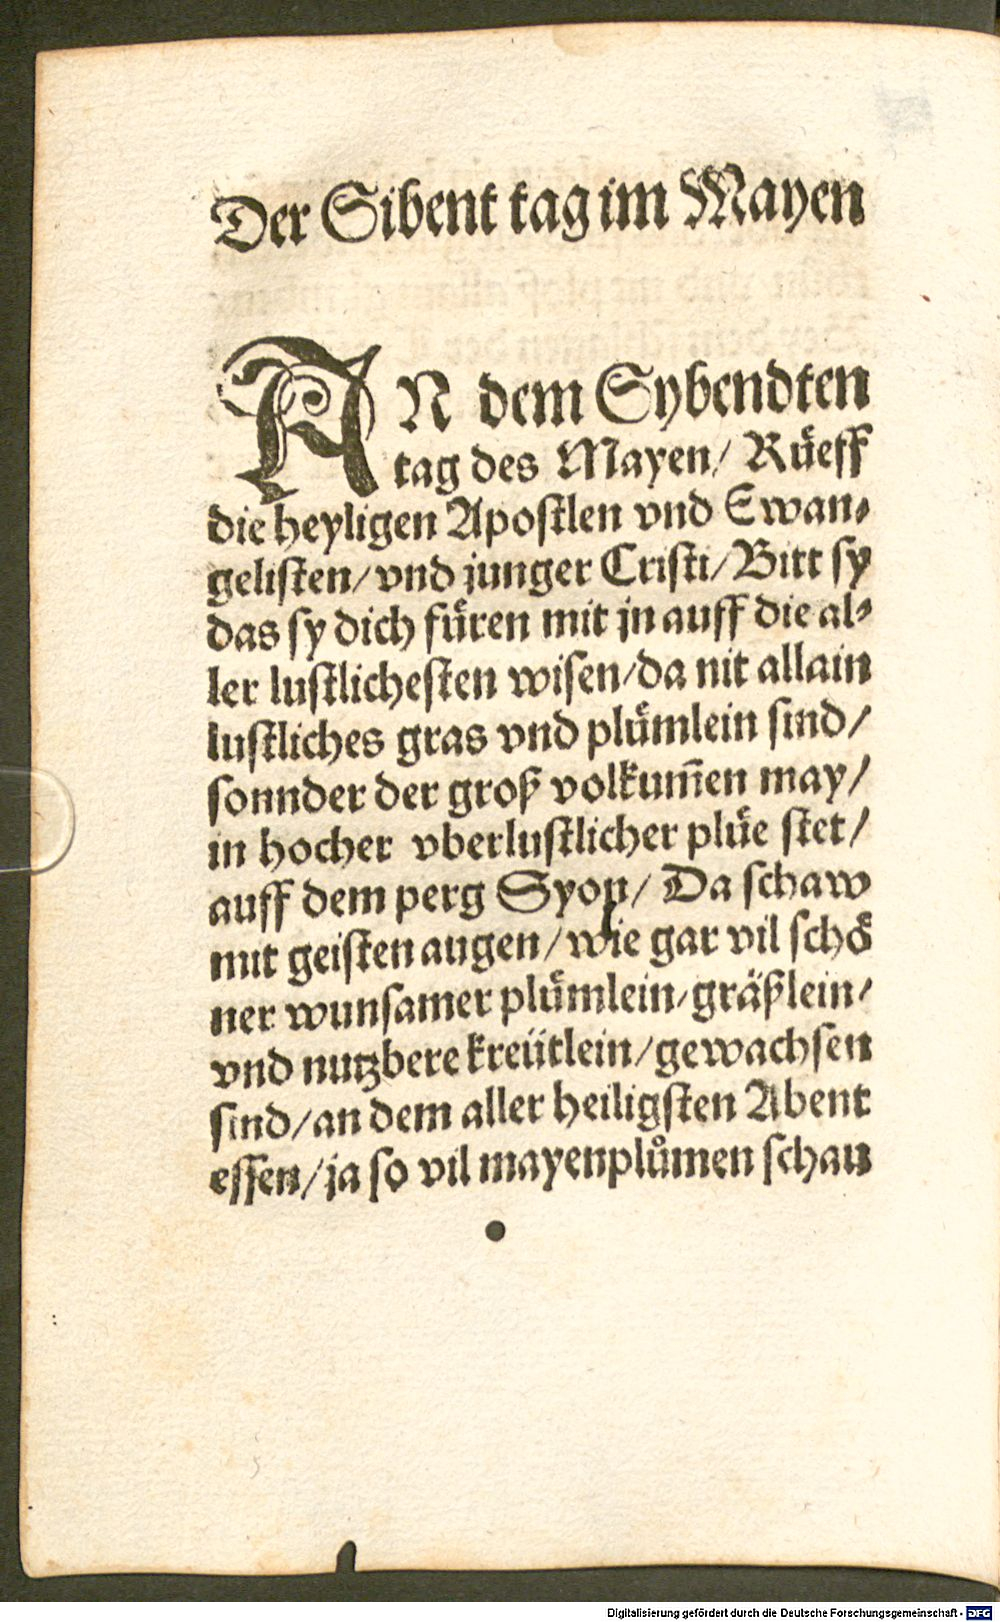 Der Sibent tag im Mayen
AN dem Sybendten
tag des Mayen/ Růeff
die heyligen Apostlen vnd Ewan⸗
gelisten/vnd junger Cristi/Bitt sy
das sy dich fůren mit jn auff die al⸗
ler lustlichesten wisen/da nit allain
lustliches gras vnd plůmlein sind/
sonnder der groß volkum̄en may/
in hocher vberlustlicher plůe stet/
auff dem perg Syon/ Da schaw
mit geisten augen/wie gar vil schö
ner wunsamer plůmlein/gräßlein/
vnd nutzbere kreütlein/gewachsen
sind/an dem aller heiligsten Abent
essen/ja so vil mayenplůmen schau
Digitalisierung gefördert durch die Deutsche Forschungsgemeinschaft - DFG